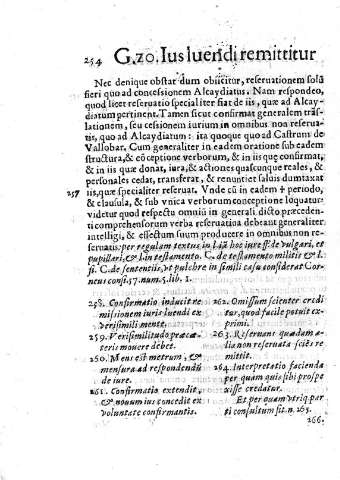 254 G.70. Ius luendi remittitur
Nec denique obstat dum obiicitur, reseruationem solũ
fieri quo ad concessionem Alcaydiatus. Nam respondeo,
quod licet reseruatio specialiter fiat de iis, quæ ad Alcay-
diatum pertinent. Tamen sicut confirmat generalem trãs-
lationem, seu cessionem iurium in omnibus non reserua-
tis, quo ad Alcaydiatum: ita quoque quo ad Castrum de
Vallobar. Cum generaliter in eadem oratione sub eadem
structura, & cõceptione verborum, & in iis quæ confirmat,
& in iis quæ donat, iura, & actiones quascunque reales, &
personales cedat, transferat, & renuntiet saluis dumtaxat
257 iis, quæ specialiter reseruat. Vnde cũ in eadem + periodo,
& clausula, & sub vnica verborum conceptione loquatur
videtur quod respectu omniũ in generali dicto præcedenti
comprehensorum verba reseruationis debeant generaliter
intelligi, & effectum suum producere in omnibus non re-
seruatis: per regulam textus in l.iã hoc iure ff. de vulgari, et
pupillari, & l. in testamento. C. de testamento militis & l.
si. C. de sententiis, vt pulchre in simili casu considerat Cor-
neus consi. 57. num. 5. lib. 1.
258. Confirmatio inducit re
missionem iuris luendi ex
verisimili mente.
259. Verisimilitudo præcæ-
teris mouere debet.
260. Mens est metrum, &
mensura ad respondendũ
de iure.
261. Confirmatio extendit,
& nouum ius concedit ex
voluntate confirmantis.
262. Omissum scienter credi
tur, quod facile potuit ex-
primi.
263. Reseruans quædam a-
lia non reseruata sciẽs re
mittit.
264. Interpretatio facienda
per quam quis sibi prospe
xisse credatur.
Et per quam vtriq; par
ti consultum sit. n. 265.
266.